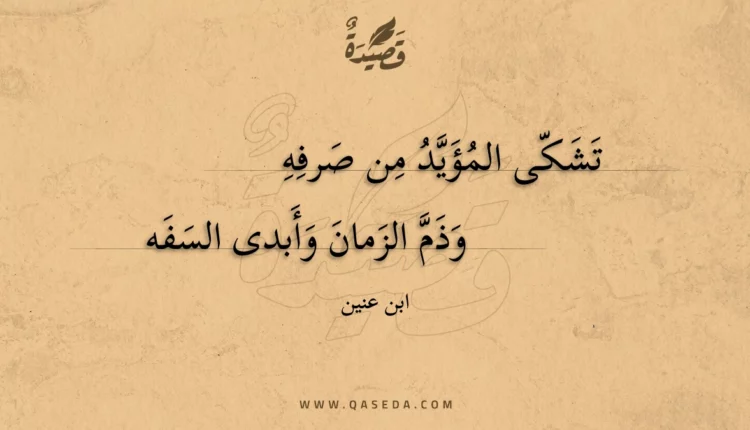 قَصِيدَةٌ
تَشَكّى المُؤَيَّدُ مِن صَرفِهِ
وَذَمَّ الزَمانَ وَأَبدى السَفَه
ابن عنين
WWW.QASEDA.COM